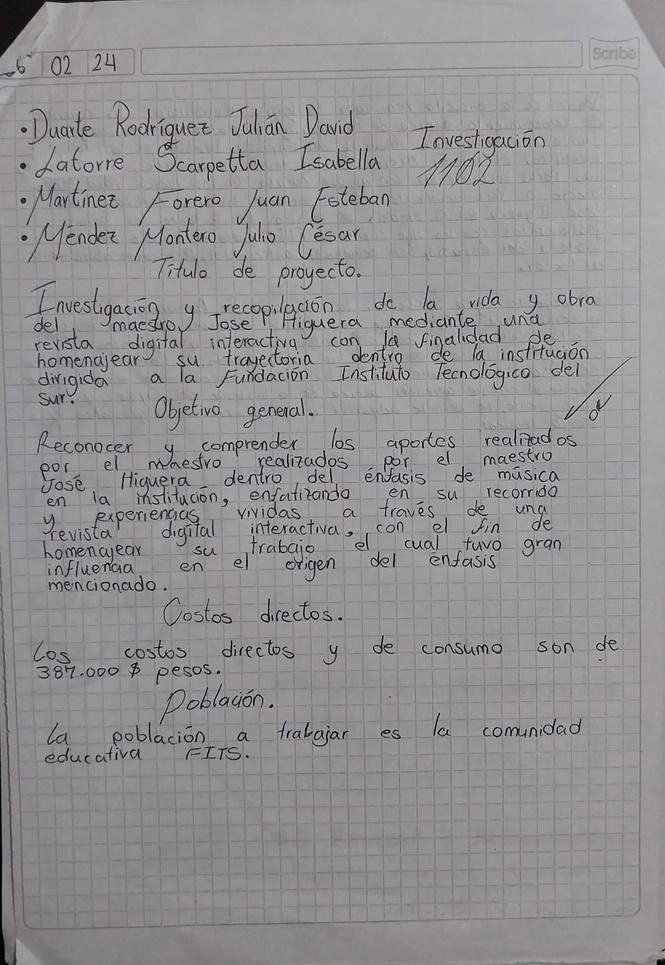 6 02 24
Scribe
• Duarte Rodríguez Julián David
Investigación
• Latorre Scarpetta Isabella
1102
• Martínez Forero Juan Esteban
• Méndez Montero Julio César
Título de proyecto.
Investigación y recopilación de la vida y obra
del maestro José Higuera mediante una
revista digital interactiva con la finalidad de
homenajear su trayectoria dentro de la institución
dirigida a la Fundación Instituto Tecnológico del
sur.
Objetivo general.
Reconocer y comprender los aportes realizados
por el maestro realizados por el maestro
José Higuera dentro del énfasis de música
en la institución, enfatizando en su recorrido
y experiencias vividas a través de una
revista digital interactiva, con el fin de
homenajear su trabajo el cual tuvo gran
influencia en el origen del énfasis
mencionado.
Costos directos.
Los costos directos y de consumo son de
387.000 $ pesos.
Población.
La población a trabajar es la comunidad
educativa FITS.